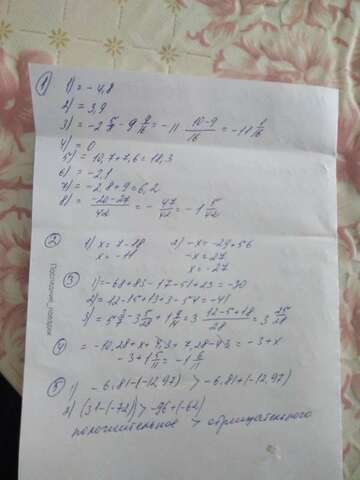 ①
1) = -4,8
2) = 3,9
3) = -2 5/7 - 9 9/16 = -11 10-9/16 = -11 1/16
4) = 0
5) = 10,7+7,6=18,3
6) = -2,1
7) = -2,8+9=6,2
8) = -20-27/42 = -47/42 = -1 5/42
② 1) x = 7-18 2) -x = -29+56
x = -11 -x = 27
x = -27
③ 1) = -68+83-17-51+23=-30
2) = 12-15+13+3-54=-41
3) = 5 3/7 - 3 5/28 + 1 7/14 = 3 12-5+18/28 = 3 25/28
④ = -10,28+x+ +7,28-43 = -3+x
-3+1 5/11 = -1 6/11
⑤ 1) -6,81-(-12,97) > -6,81+(-12,97)
2) (31-(-72)) > -96+(-62)
положительное > отрицательного